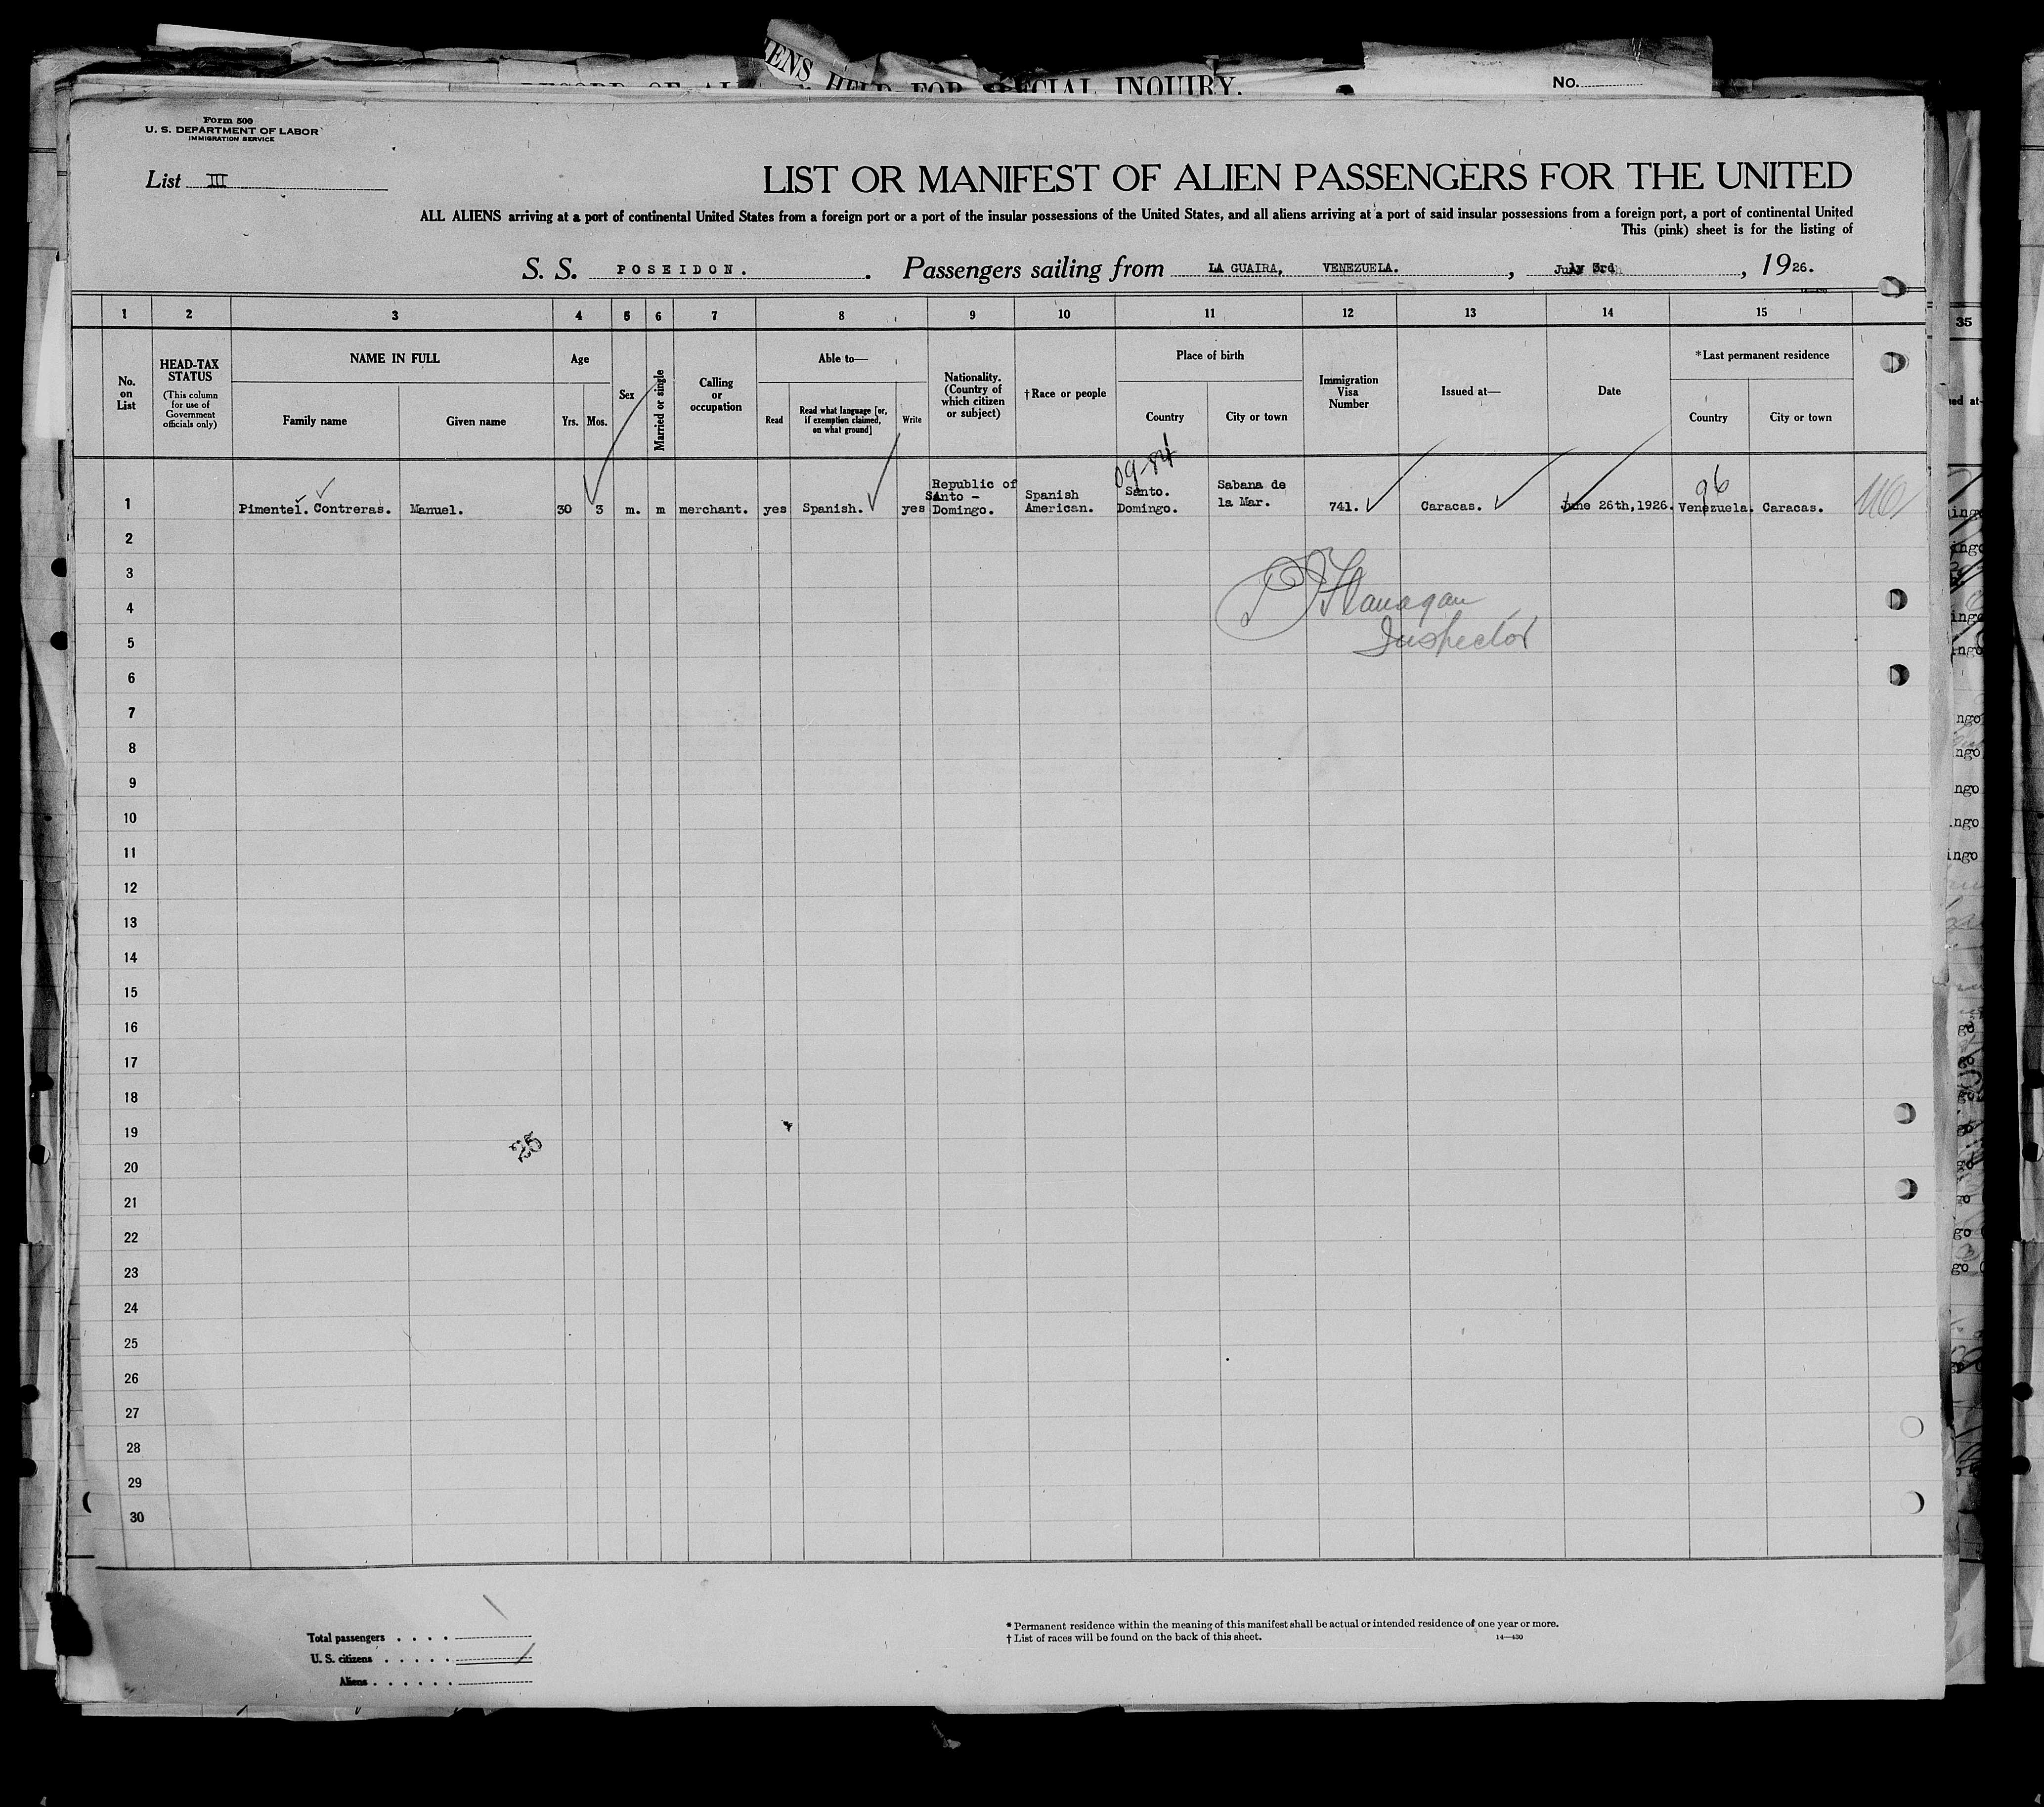 HELD FOR SPECIAL INQUIRY.
No.
Form 500
U. S. DEPARTMENT OF LABOR
IMMIGRATION SERVICE
List III
LIST OR MANIFEST OF ALIEN PASSENGERS FOR THE UNITED
ALL ALIENS arriving at a port of continental United States from a foreign port or a port of the insular possessions of the United States, and all aliens arriving at a port of said insular possessions from a foreign port, a port of continental United
This (pink) sheet is for the listing of
S. S. POSEIDON. Passengers sailing from LA GUAIRA, VENEZUELA. , July 3rd , 1926.
1 2 3 4 5 6 7 8 9 10 11 12 13 14 15
35
No. on List
HEAD-TAX STATUS
(This column for use of Government officials only)
NAME IN FULL
Family name
Given name
Age
Yrs.
Mos.
Sex
Married or single
Calling or occupation
Able to—
Read
Read what language [or, if exemption claimed, on what ground]
Write
Nationality. (Country of which citizen or subject)
†Race or people
Place of birth
Country
City or town
Immigration Visa Number
Issued at—
Date
*Last permanent residence
Country
City or town
09-84
96
1 Pimentel. Contreras. Manuel. 30 3 m. m merchant. yes Spanish. yes Republic of Santo - Domingo. Spanish American. Santo. Domingo. Sabana de la Mar. 741. Caracas. June 26th,1926. Venezuela. Caracas.
2
3
Flanagan
4
Inspector
5
6
7
8
9
10
11
12
13
14
15
16
17
18
19
26
20
21
22
23
24
25
26
27
28
29
30
Total passengers . . . .
U. S. citizens . . . . .
Aliens . . . . . .
* Permanent residence within the meaning of this manifest shall be actual or intended residence of one year or more.
† List of races will be found on the back of this sheet.
14—430